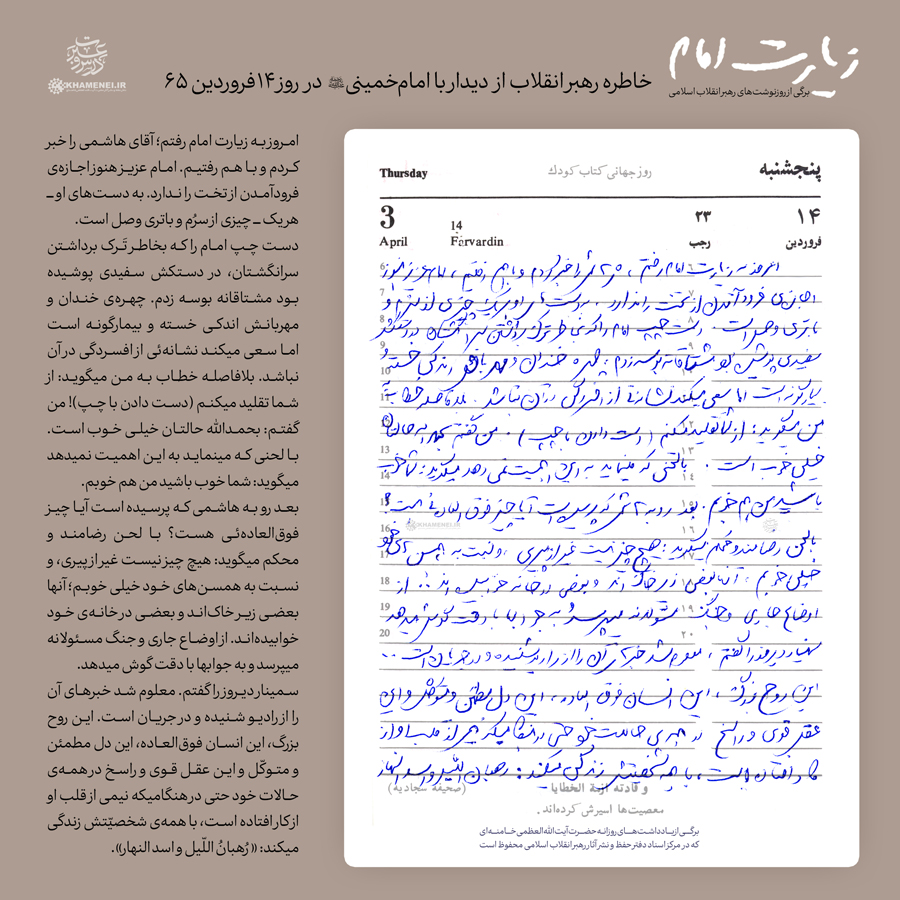 زیارت امام
خاطره رهبر انقلاب از دیدار با امام خمینی در روز ۱۴ فروردین ۶۵
برگی از روزنوشت‌های رهبر انقلاب اسلامی
درس و عبرت
KHAMENEI.IR
امروز به زیارت امام رفتم؛ آقای هاشمی را خبر
کردم و با هم رفتیم. امام عزیز هنوز اجازه‌ی
فرود آمدن از تخت را ندارد. به دست‌های او ـ
هر یک ـ چیزی از سرُم و باتری وصل است.
دست چپ امام را که بخاطر تَرک برداشتن
سرانگشتان، در دستکش سفیدی پوشیده
بود مشتاقانه بوسه زدم. چهره‌ی خندان و
مهربانش اندکی خسته و بیمارگونه است
اما سعی میکند نشانه‌ئی از افسردگی در آن
نباشد. بلافاصله خطاب به من میگوید: از
شما تقلید میکنم (دست دادن با چپ)! من
گفتم: بحمدالله حالتان خیلی خوب است.
با لحنی که مینماید به این اهمیت نمیدهد
میگوید: شما خوب باشید من هم خوبم.
بعد رو به هاشمی که پرسیده است آیا چیز
فوق‌العاده‌ئی هست؟ با لحن رضامند و
محکم میگوید: هیچ چیز نیست غیر از پیری، و
نسبت به همسن‌های خود خیلی خوبم؛ آنها
بعضی زیر خاک‌اند و بعضی در خانه‌ی خود
خوابیده‌اند. از اوضاع جاری و جنگ مسئولانه
میپرسد و به جوابها با دقت گوش میدهد.
سمینار دیروز را گفتم. معلوم شد خبرهای آن
را از رادیو شنیده و در جریان است. این روح
بزرگ، این انسان فوق‌العاده، این دل مطمئن
و متوکّل و این عقل قوی و راسخ در همه‌ی
حالات خود حتی در هنگامیکه نیمی از قلب او
از کار افتاده است، با همه‌ی شخصیّتش زندگی
میکند: «رُهبانُ اللّیل و اسد النهار».
پنجشنبه
روز جهانی کتاب کودک
Thursday
۱۴
۲۳
14
3
فروردین
رجب
Farvardin
April
امروز به زیارت امام رفتم، هاشمی را خبر کردم و با هم رفتیم، امام عزیز هنوز
اجازه‌ی فرود آمدن از تخت را ندارد. به دست‌های او هر یک چیزی از سرم و
باتری وصل است. دست چپ امام را که بخاطر ترک برداشتن سر انگشتان در دستکش
سفیدی پوشیده بود مشتاقانه بوسه زدم. چهره خندان و مهربانش اندکی خسته و
بیمارگونه است اما سعی میکند نشانه‌ئی از افسردگی در آن نباشد. بلافاصله خطاب به
من میگوید: از شما تقلید میکنم (دست دادن با چپ)! من گفتم بحمدالله حالتان
خیلی خوب است. با لحنی که مینماید به این اهمیت نمی دهد میگوید: شما خوب
باشید من هم خوبم. بعد رو به هاشمی که پرسیده است آیا چیز فوق العاده‌ئی هست؟
با لحن رضامند و محکم میگوید: هیچ چیز نیست غیر از پیری، و نسبت به همسن های خود
خیلی خوبم، آنها بعضی زیر خاک‌اند و بعضی در خانه خوابیده‌اند.. از
اوضاع جاری و جنگ مسئولانه میپرسد و به جوابها با دقت گوش میدهد
سمینار دیروز را گفتم، معلوم شد خبرهای آن را از رادیو شنیده و در جریان است..
این روح بزرگ، این انسان فوق العاده، این دل مطمئن و متوکل و این
عقل قوی و راسخ در همه‌ی حالات خود حتی در هنگامیکه نیمی از قلب او از
کار افتاده است، با همه شخصیتش زندگی میکند: رهبان اللیل و اسد النهار
6
7
8
9
10
11
12
13
14
15
16
17
18
19
20
KHAMENEI.IR
و قادته ازمة الخطایا
(صحیفه سجادیه)
معصیت‌ها اسیرش کرده‌اند.
برگی از یادداشت‌های روزانه حضرت آیت‌الله‌العظمی خامنه‌ای
که در مرکز اسناد دفتر حفظ و نشر آثار رهبر انقلاب اسلامی محفوظ است